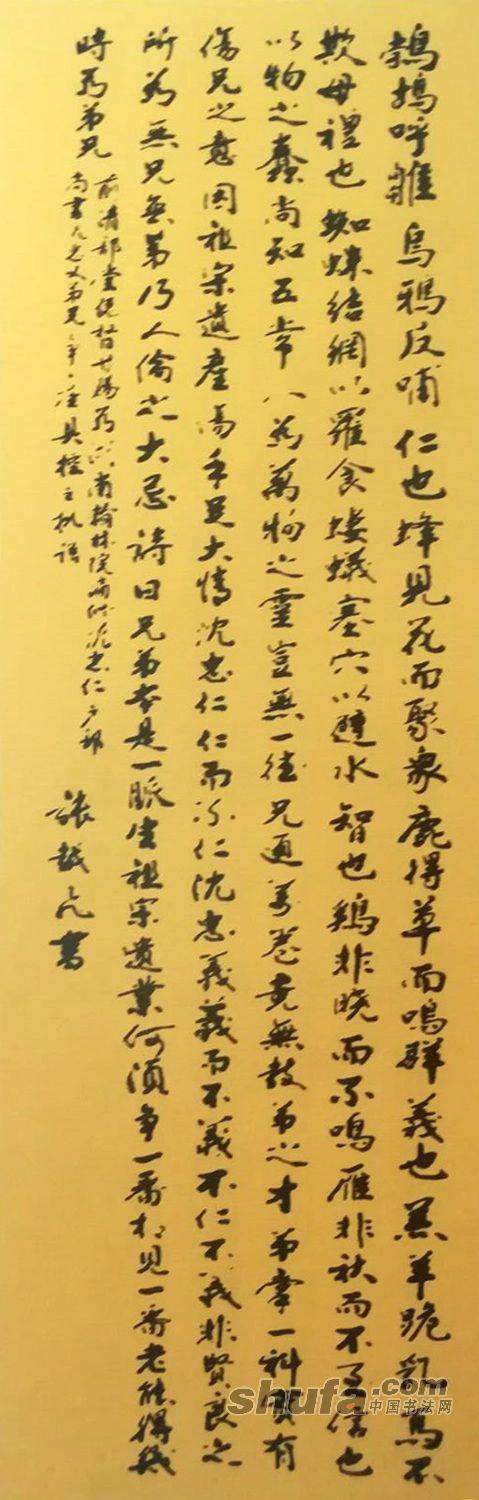 鵓鴣呼雛烏鴉反哺仁也蜂見花而聚衆鹿得草而鳴群義也羔羊跪乳馬不
欺母禮也蜘蛛結網以羅食螻蟻塞穴以避水智也鷄非曉而不鳴雁非秋而不至信也
以物之蠢尚知五常人為萬物之靈豈無一德兄通萬卷竟無教弟之才弟掌一科豈有
傷兄之意因祖宗遺產傷手足大情沈忠仁仁而不仁沈忠義義而不義不仁不義非賢良之
所為無兄無弟乃人倫之大忌詩曰兄弟本是一脈生祖宗遺業何須爭一番相見一番老能得幾
時為弟兄
前清部堂總督
南翰林院
沈忠仁戶部
尚書
弟兄
具控之批語
張越凡書
shufa.com
中国书法网